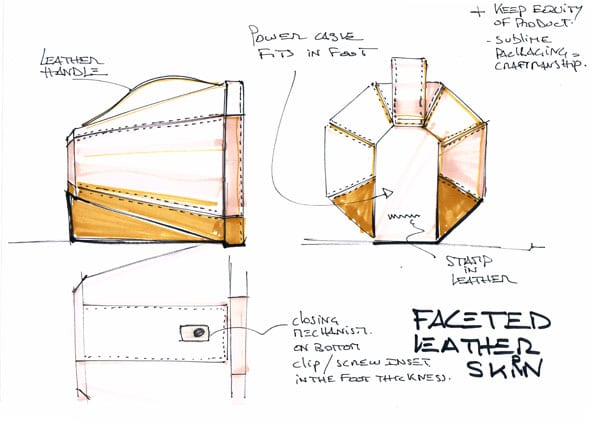 + KEEP EQUITY
OF PRODUCT.
- SUBLIME
PACKAGING =
CRAFTMANSHIP.
POWER CABLE
FITS IN FOOT
LEATHER
HANDLE
STAMP
IN
LEATHER
CLOSING
MECHANISM.
ON BOTTOM
CLIP/SCREW INSET
IN THE FOOT THICKNESS.
FACETED
LEATHER
SKIN